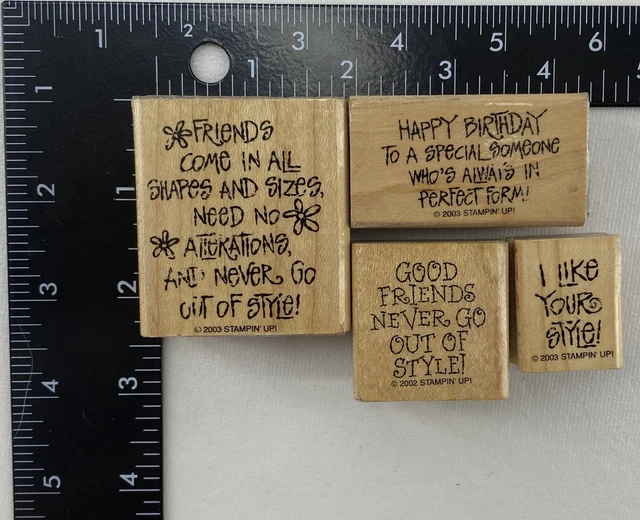 1 2 3 4 5 6
1 2 3 4
1
2
3
4
5
1
2
3
4
FRIENDS
COME IN ALL
SHAPES AND SIZES,
NEED NO
ALTERATIONS,
AND NEVER GO
OUT OF STYLE!
© 2003 STAMPIN' UP!
HAPPY BIRTHDAY
TO A SPECIAL SOMEONE
WHO'S ALWAYS IN
PERFECT FORM!
© 2003 STAMPIN' UP!
GOOD
FRIENDS
NEVER GO
OUT OF
STYLE!
© 2002 STAMPIN' UP!
I LIKE
YOUR
STYLE!
© 2003 STAMPIN' UP!